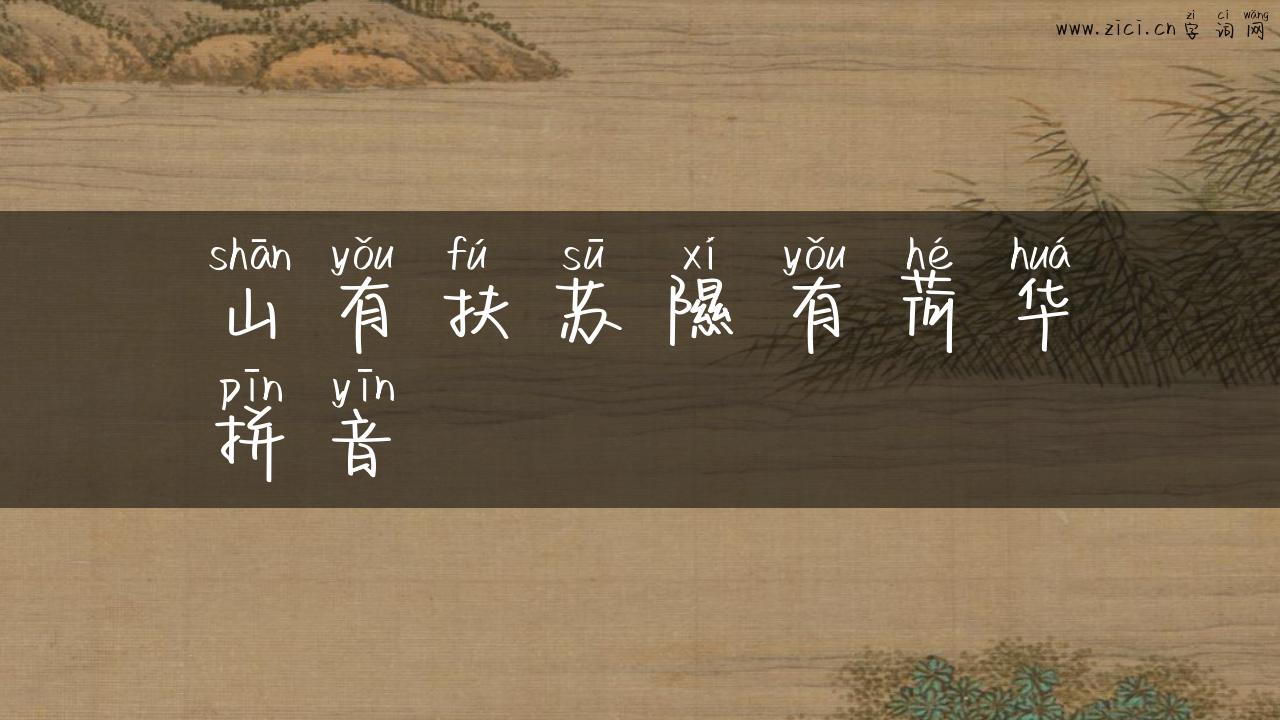 zì cí wǎng
www.zici.cn 字词网
shān yǒu fú sū xí yǒu hé huá
山有扶苏隰有荷华
pīn yīn
拼音